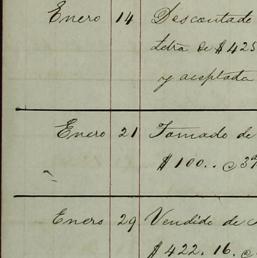 Enero 14 Descontado
Letra de $425
y aceptada
Enero 21 Tomado de
$100..
Enero 29 Vendido de
$422.16.